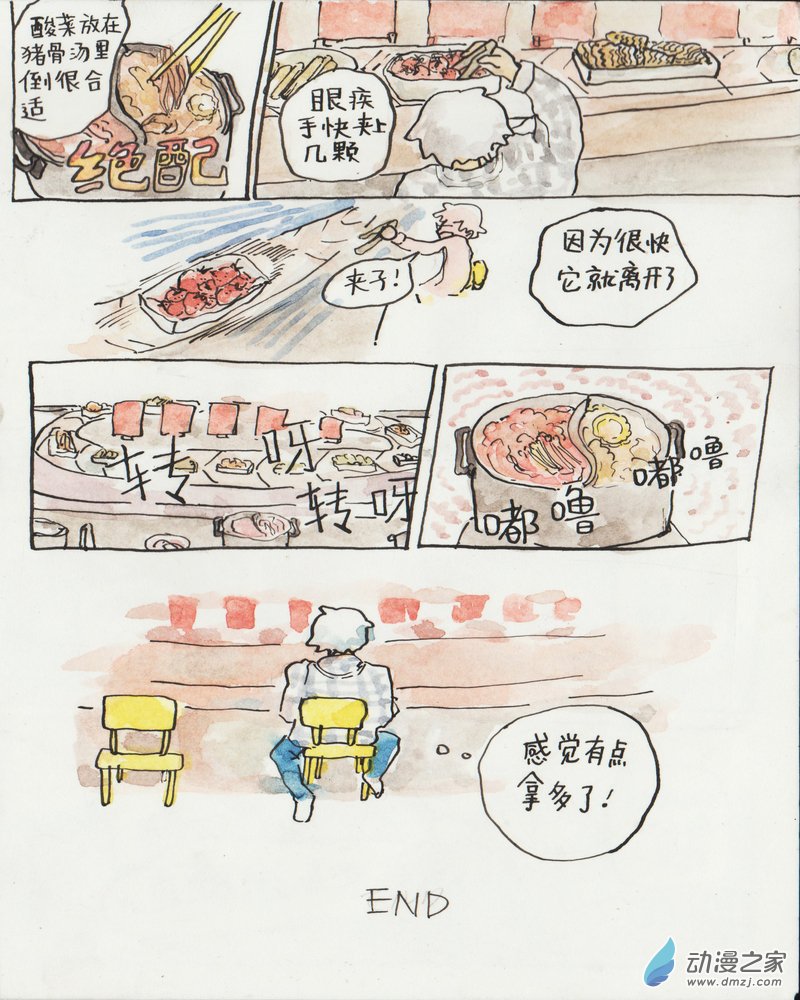 酸菜放在
猪骨汤里
倒很合
适
绝配
眼疾
手快夹上
几颗
夹子！
因为很快
它就离开了
转呀
转呀
嘟噜
嘟噜
感觉有点
拿多了！
END
动漫之家
www.dmzj.com